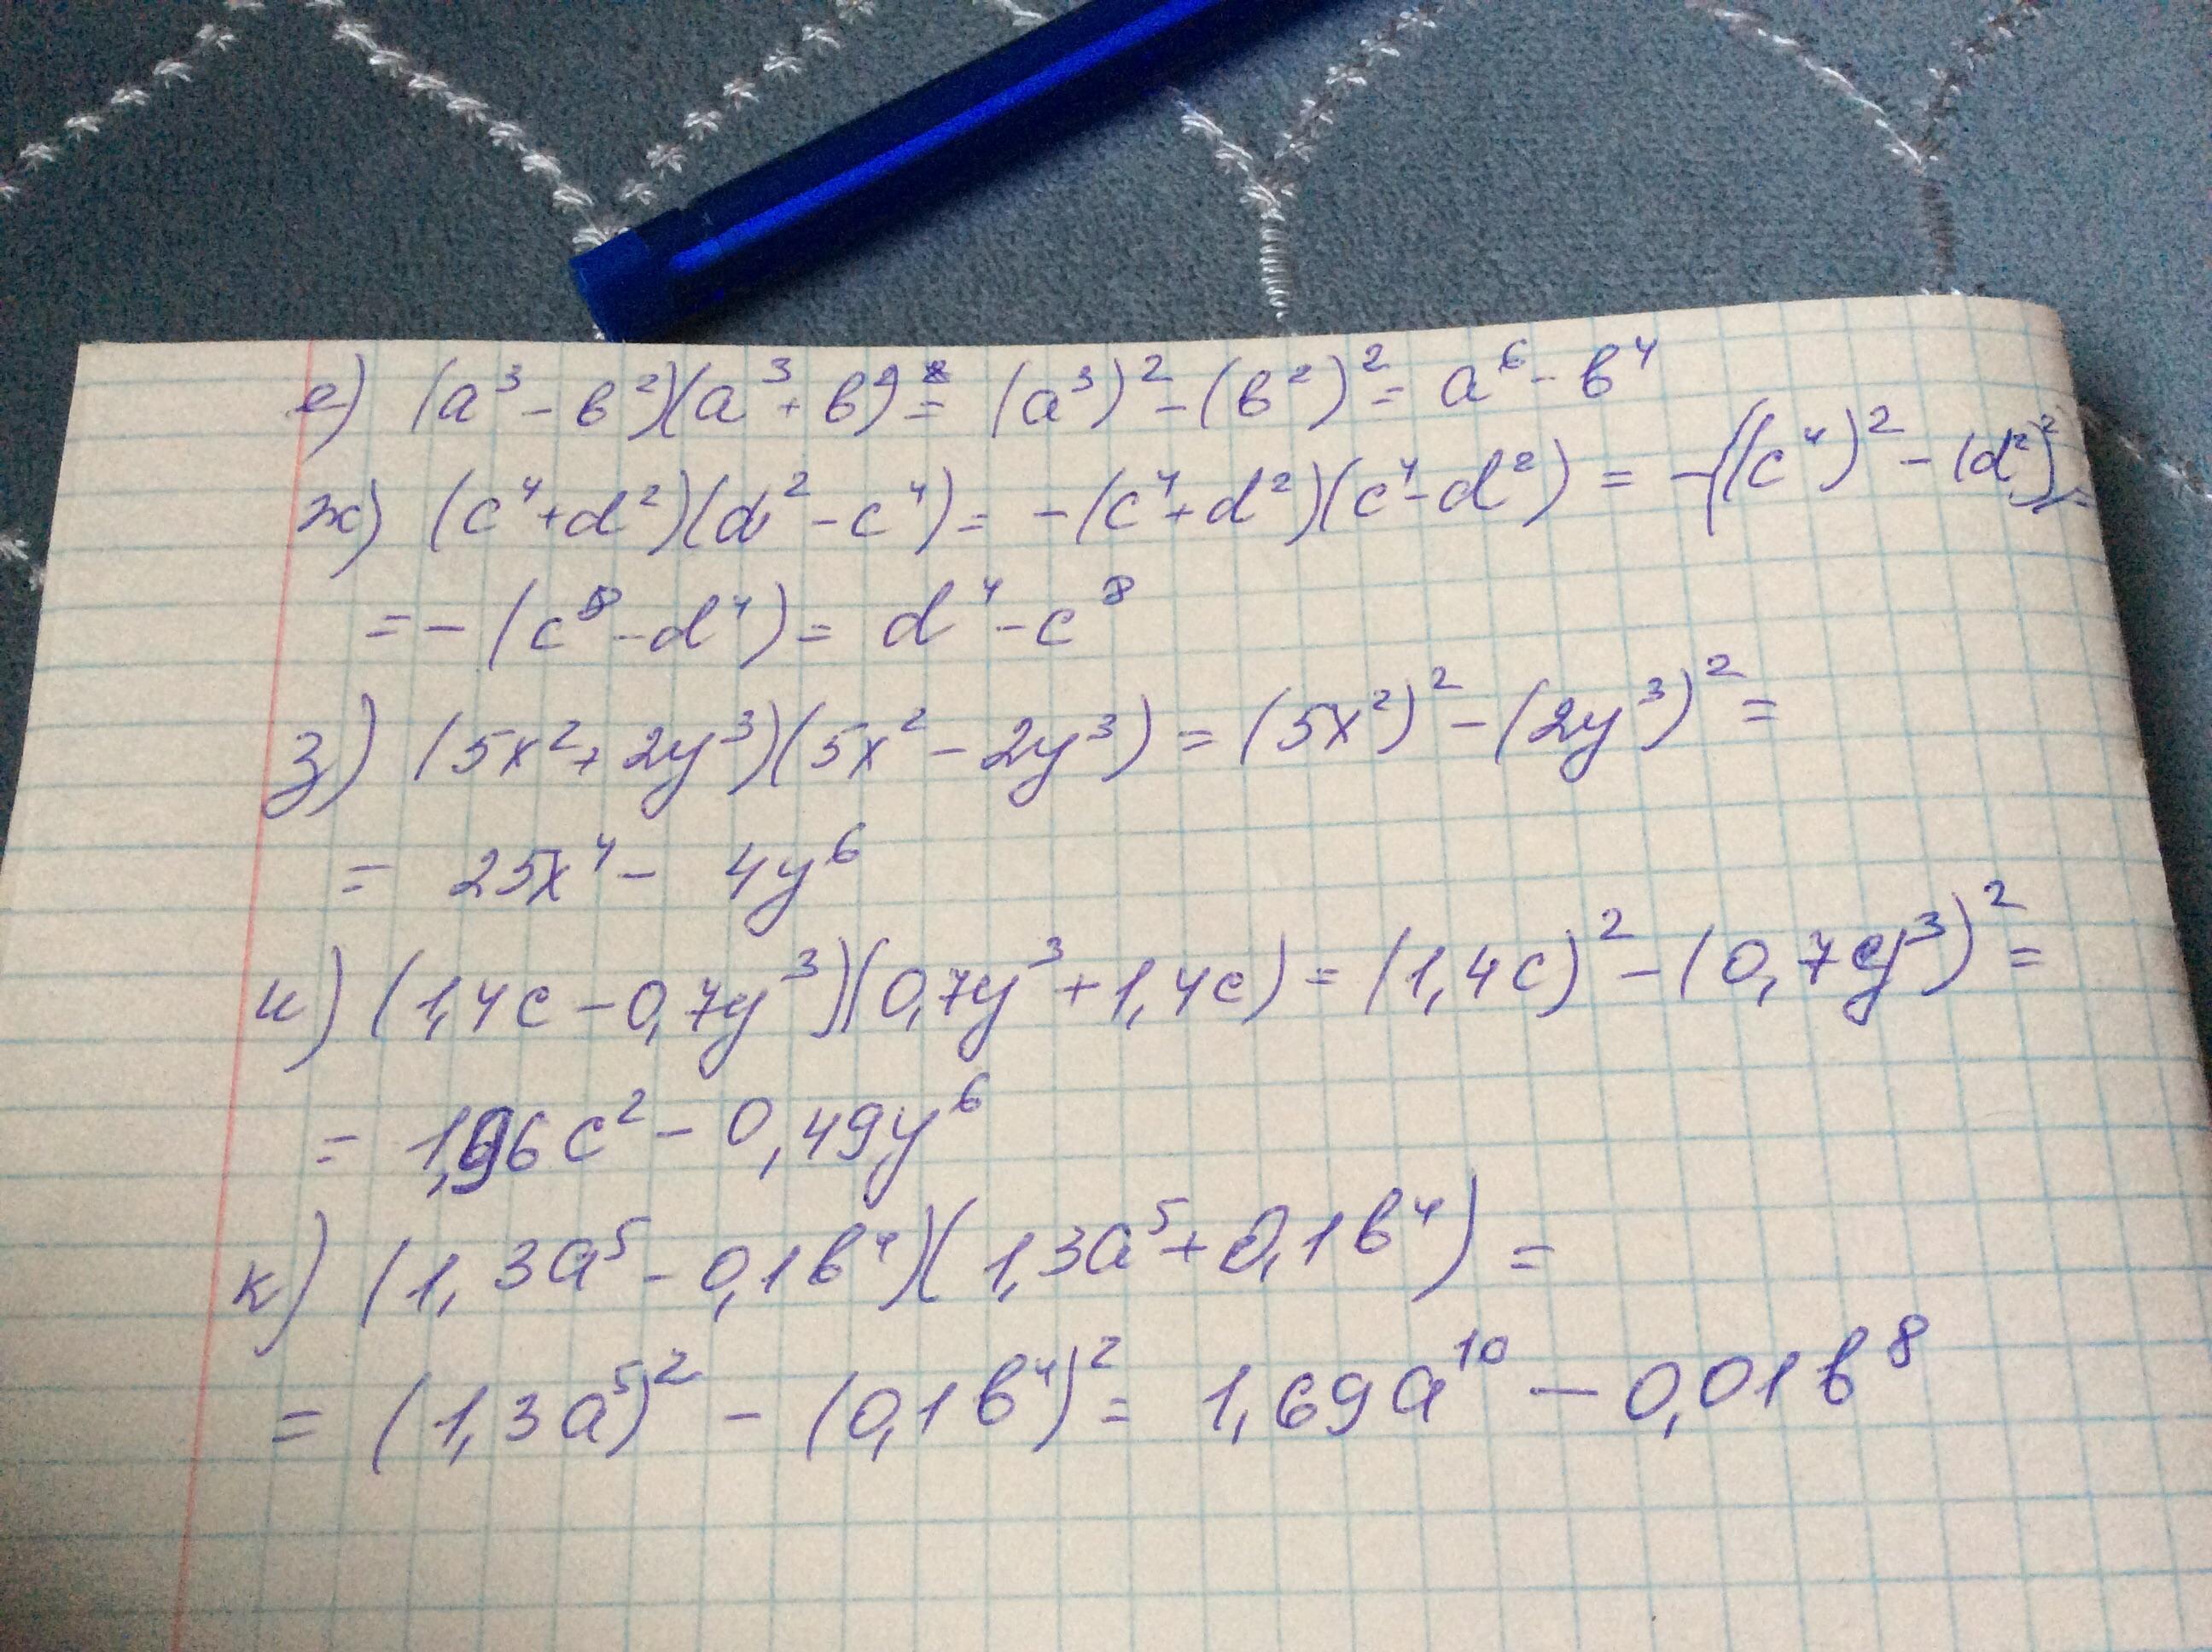 е) (a³ - b²)(a³ + b²) = (a³)² - (b²)² = a⁶ - b⁴
ж) (c⁴ + d²)(d² - c⁴) = -(c⁴ + d²)(c⁴ - d²) = -((c⁴)² - (d²)²) =
= -(c⁸ - d⁴) = d⁴ - c⁸
з) (5x² + 2y³)(5x² - 2y³) = (5x²)² - (2y³)² =
= 25x⁴ - 4y⁶
и) (1,4c - 0,7y³)(0,7y³ + 1,4c) = (1,4c)² - (0,7y³)² =
= 1,96c² - 0,49y⁶
к) (1,3a⁵ - 0,1b⁴)(1,3a⁵ + 0,1b⁴) =
= (1,3a⁵)² - (0,1b⁴)² = 1,69a¹⁰ - 0,01b⁸